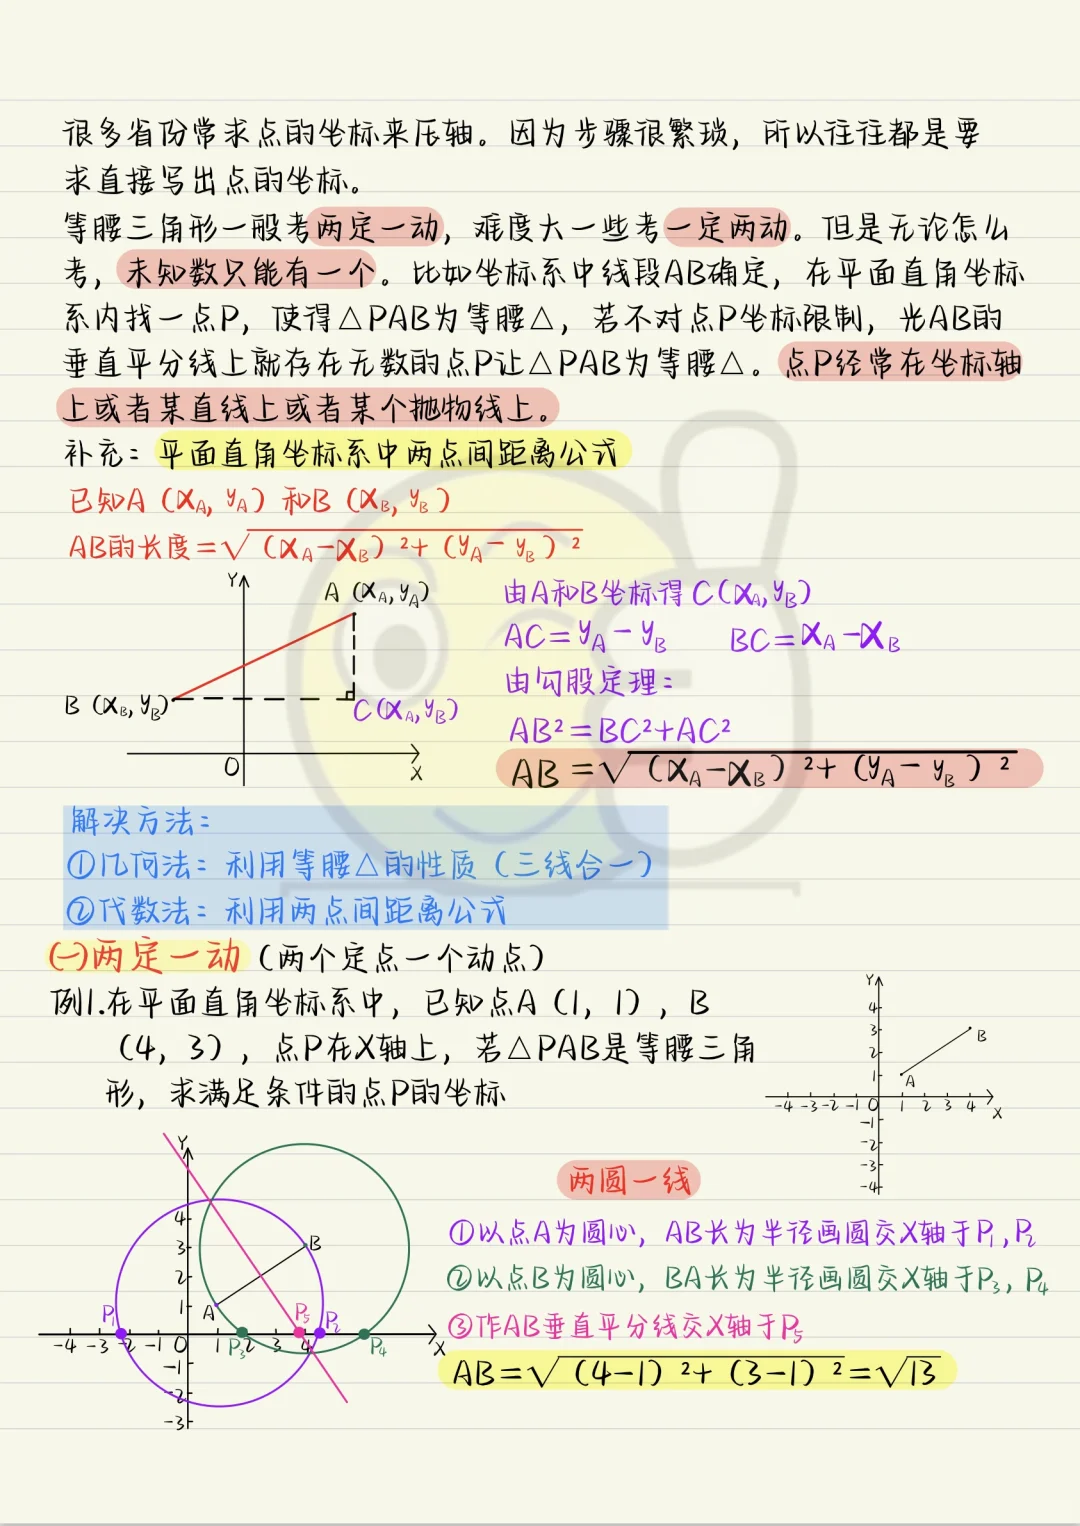 很多省份常求点的坐标来压轴。因为步骤很繁琐，所以往往都是要
求直接写出点的坐标。
等腰三角形一般考两定一动，难度大一些考一定两动。但是无论怎么
考，未知数只能有一个。比如坐标系中线段AB确定，在平面直角坐标
系内找一点P，使得△PAB为等腰△，若不对点P坐标限制，光AB的
垂直平分线上就存在无数的点P让△PAB为等腰△。点P经常在坐标轴
上或者某直线上或者某个抛物线上。
补充：平面直角坐标系中两点间距离公式
已知A（X_A, y_A）和B（X_B, y_B）
AB的长度=√（X_A-X_B）²+（y_A-y_B）²
Y
A（X_A, y_A）
B（X_B, y_B）
C(X_A, y_B)
O
X
由A和B坐标得C(X_A, y_B)
AC=y_A-y_B BC=X_A-X_B
由勾股定理：
AB²=BC²+AC²
AB=√（X_A-X_B）²+（y_A-y_B）²
解决方法：
①几何法：利用等腰△的性质（三线合一）
②代数法：利用两点间距离公式
(一)两定一动（两个定点一个动点）
例1.在平面直角坐标系中，已知点A（1，1），B
（4，3），点P在X轴上，若△PAB是等腰三角
形，求满足条件的点P的坐标
Y
4
3
2
1
B
A
-4 -3 -2 -1 0 1 2 3 4 X
-1
-2
-3
-4
Y
4
3
2
1
B
A
P₁ P₅ P₂
-4 -3 -2 -1 0 1 P₃ 2 3 4 P₄ X
-1
-2
-3
两圆一线
①以点A为圆心，AB长为半径画圆交X轴于P₁, P₂
②以点B为圆心，BA长为半径画圆交X轴于P₃, P₄
③作AB垂直平分线交X轴于P₅
AB=√（4-1）²+（3-1）²=√13